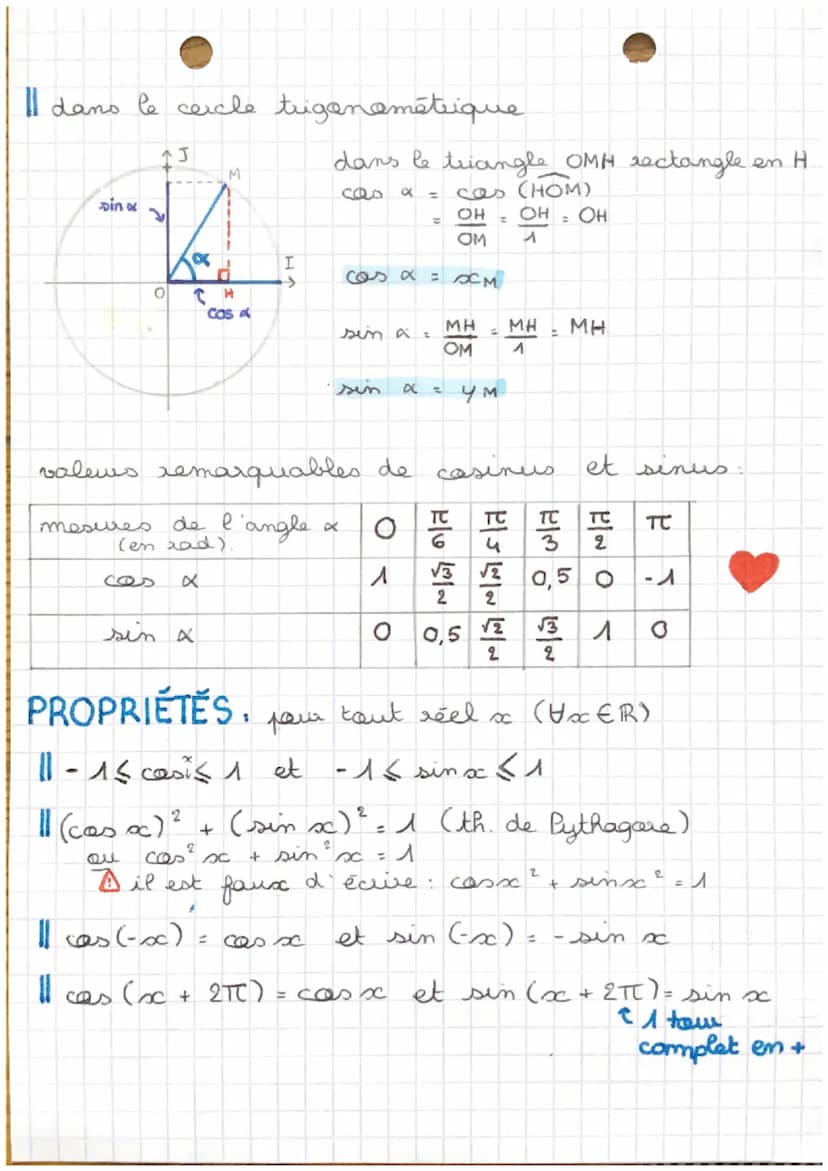 dans le cercle trigonométrique
J
M
sin α
α
I
O
H
cos α
dans le triangle OMH rectangle en H
cos α = cos (HOM)
= OH/OM = OH/1 = OH
cos α = xM
sin α = MH/OM = MH/1 = MH
sin α = yM
valeurs remarquables de cosinus et sinus :
mesures de l'angle α (en rad). 0 π/6 π/4 π/3 π/2 π
cos α 1 √3/2 √2/2 0,5 0 -1
sin α 0 0,5 √2/2 √3/2 1 0
PROPRIÉTÉS : pour tout réel x (∀x ∈ ℝ)
-1 ≤ cos x ≤ 1 et -1 ≤ sin x ≤ 1
(cos x)² + (sin x)² = 1 (th. de Pythagore)
ou cos² x + sin² x = 1
⚠ il est faux d'écrire : cos x² + sin x² = 1
cos (-x) = cos x et sin (-x) = - sin x
cos (x + 2π) = cos x et sin (x + 2π) = sin x
↑ 1 tour
complet en +